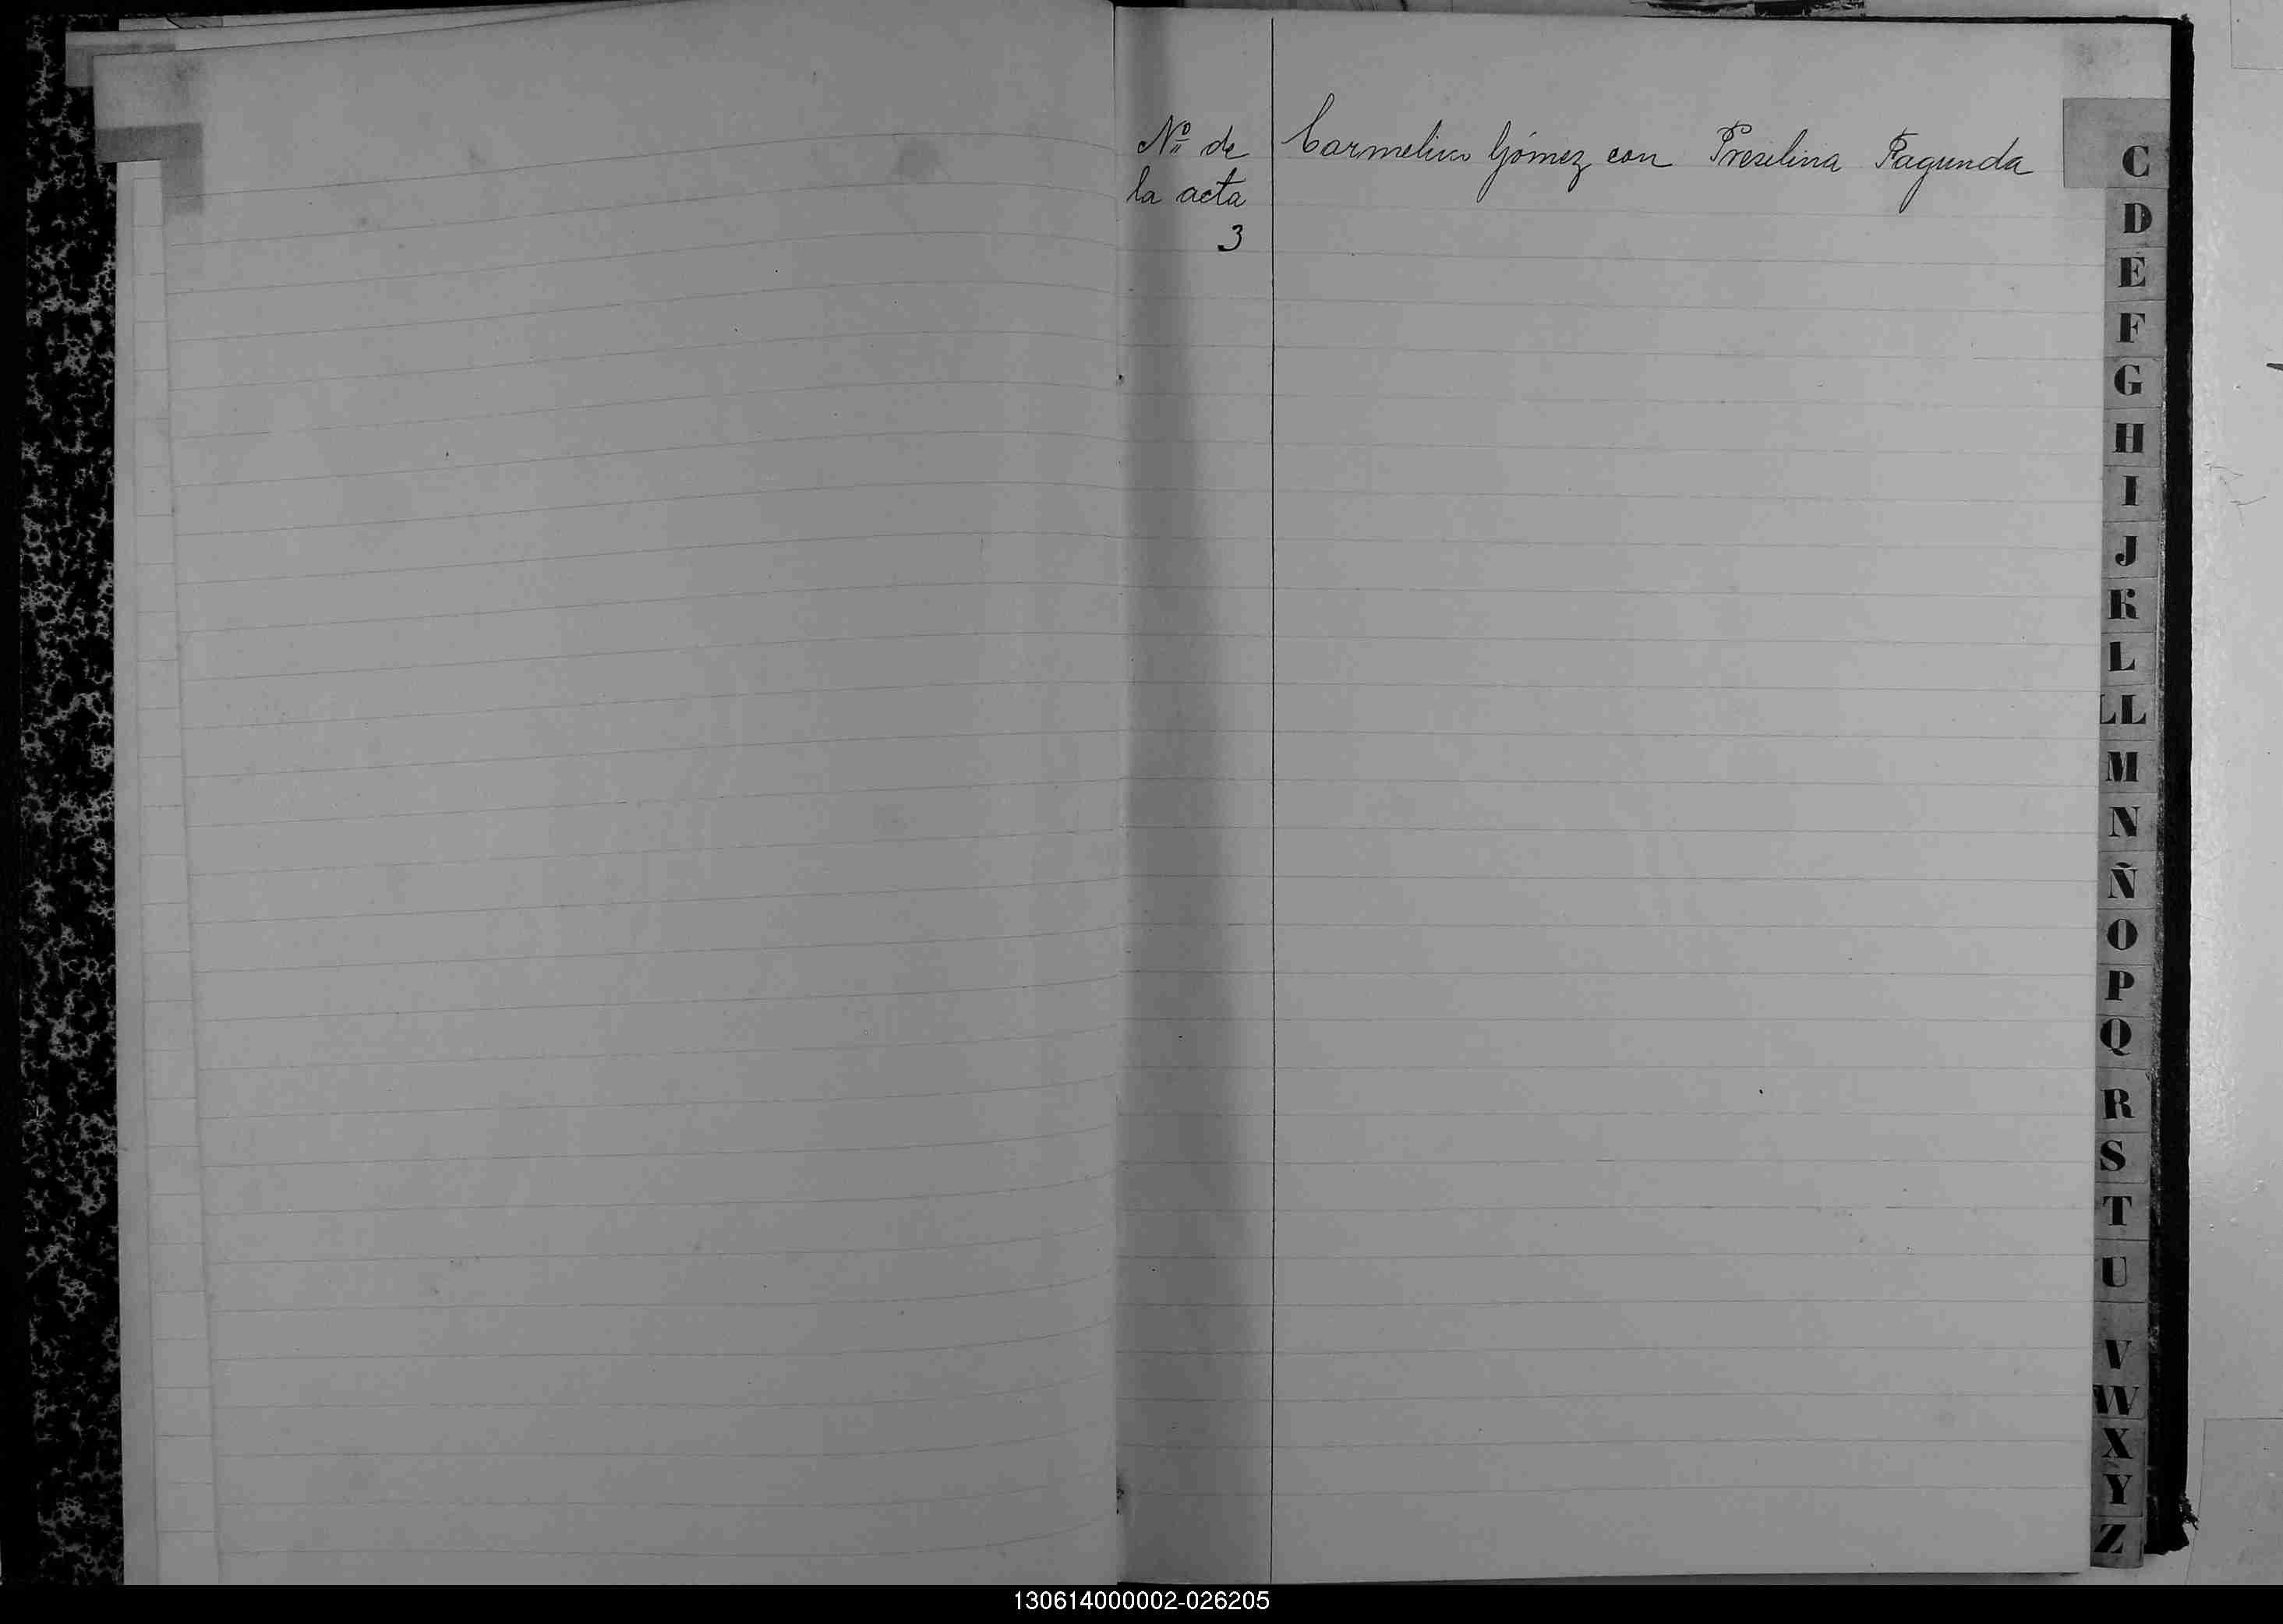 Nº de
la acta
3
Carmelino Gómez con Preselina Fagunda
C
D
E
F
G
H
I
J
K
L
LL
M
N
Ñ
O
P
Q
R
S
T
U
V
W
X
Y
Z
130614000002-026205